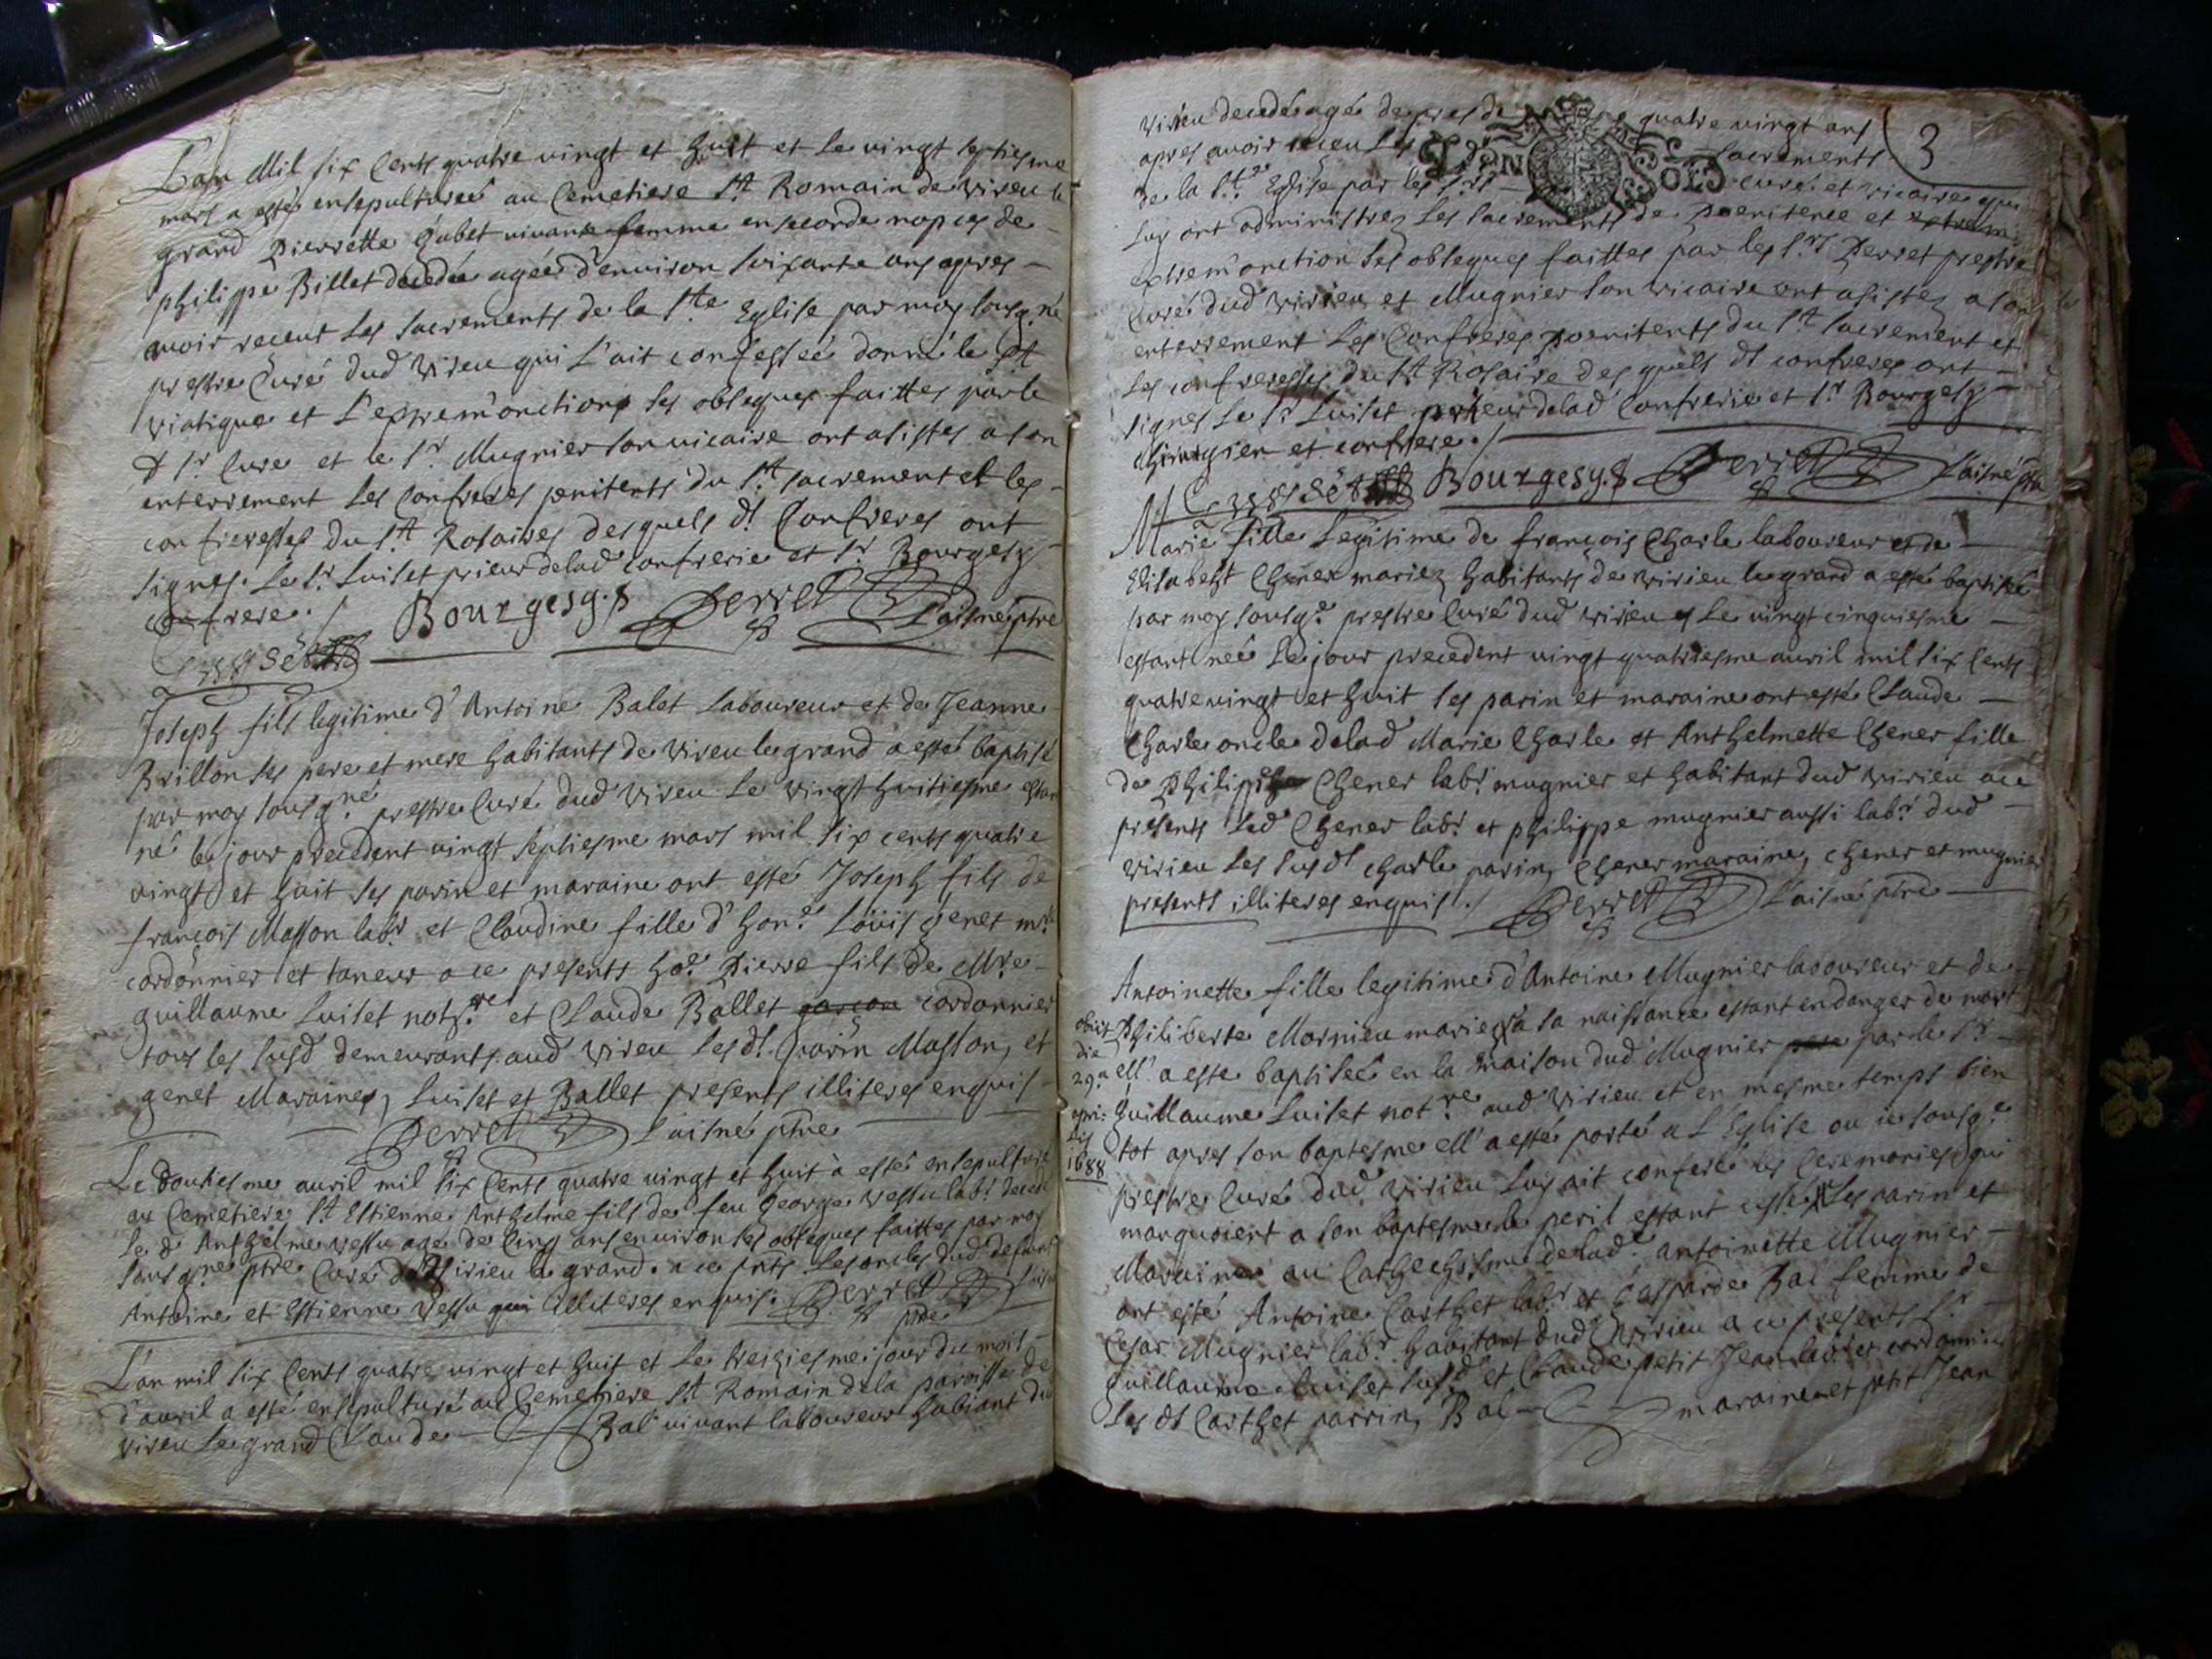 L'an Mil six Cents quatre vingt et huit et Le vingt septiesme
mars a esté ensepulturée au Cemetiere St Romain de Vireu le
grand Pierrette Gubet vivante femme en seconde nopces de
philippe Billet decedée agée d'environ soixante ans apres
avoir receut Les Sacrements de la Ste Eglise par moy sousg.né
prestre Curé dud Vireu qui L'ait confessée donné le St
viatique et L'extrem'onction ses obseques faittes par le
d Sr Cure et le Sr Mugnier son vicaire ont asistes a son
enterrement Les Confreres penitents du St Sacrement et les
confreresses du St Rosaire desquels ds Confreres ont
signes. Le Sr Luiset prieur de lad confrerie et Sr Bourgesy
Confrere./ Bourgesy.
Perret L'aisné ptre
Joseph fils legitime d'Antoine Balet Laboureur et de Jeanne
Brillon ses pere et mere habitants de Vireu le grand a esté baptisé
par moy sousg.né prestre Curé dud Vireu Le vingt huitiesme estant
né le jour precedent vingt septiesme mars mil six cents quatre
vingt et huit ses parin et maraine ont esté Joseph fils de
françois Masson labr et Claudine fille d'hon.e Loüis genet mr
cordonnier et taneur a ce presents ho.e Pierre fils de Mre
guillaume Luiset not.re et Claude Ballet garçon cordonnier
tous les susd demeurants aud Vireu Les ds parin Masson, et
genet Maraine, Luiset et Ballet presents illiteres enquis
Perret L'aisné ptre
Le douziesme avril mil six Cents quatre vingt et huit à esté ensepulturé
au Cemetiere St Estienne Anthelme fils de feu George Vessu labr decedé
le d Anthelme Vessu agé de Cinq ans environ ses obseques faittes par moy
sousg.né ptre Curé dud Virieu le grand. a ce pnts Les oncles dud defunt
Antoine et Estienne Vessu qui illiteres enquis. Perret L'aisné
ptre
L'an mil six Cents quatre vingt et huit et Le treiziesme jour du mois
d'avril a esté ensepulturé au Cemetiere St Romain de la paroisse de
vireu Le grand Claude Bal vivant laboureur habiant du
3
Virieu decedé agé de pres de quatre vingt ans
apres avoir receu Les Sacrements
de la Ste Eglise par les Srs curé et vicaire qui
Luy ont administrez Les Sacrements de poenitence et extrem
extrem'onction ses obseques faittes par les Srs Perret prestre
Curé dud Virieu et Mugnier son vicaire ont asistez a son
enterrement Les Confreres poenitents du St Sacrement et
Les confreresses du St Rosaire des quels ds confreres ont
signes Le Sr Luiset prieur de lad Confrerie et Sr Bourgesy
Chirurgien et confrere./
Bourgesy. Perret L'aisné ptre
Marie fille Legitime de françois Charle laboureur et de
Elisabeht Chener mariez habitants de Virieu le grand a esté baptisée
par moy sousg.é prestre Curé dud Virieu Le vingt cinquiesme
estant née Le jour precedent vingt quatriesme avril mil six Cents
quatre vingt et huit ses parin et maraine ont esté Claude
Charle oncle delad Marie Charle et Anthelmette Chener fille
de Philippe Chener labr mugnier et habitant dud Virieu a ce
presents Led Chener labr et philippe mugnier aussi labr dud
Virieu Les susds Charle parin, Chener maraine, Chener et mugnier
presents illiteres enquis./ Perret L'aisné ptre
Antoinette fille legitime d'Antoine Mugnier laboureur et de
Philiberte Mornieu mariez à sa naissance estant en danger de mort
ell' a este baptisée en la maison dud Mugnier par le Sr
Guillaume Luiset not.re aud Virieu et en mesme temps bien
tot apres son baptesme ell' a esté porté a L'Eglise ou ie sousg.é
prestre Curé dud Virieu Luy ait conferé les Ceremonies qui
manquoient a son baptesme le peril estant cessé Les parin et
Maraine au Cathechisme delad.e antoinette Mugnier
ont esté Antoine Carthet labr et Gasparde Bal femme de
Cesar Mugnier labr habitant dud Virieu a ce presents Sr
guillaume Luiset susd et Claude petit Jean labr et cordonnier
Les ds Carthet parrin, Bal maraine et petit Jean
obiit
die
29.a
apri:
lis
1688